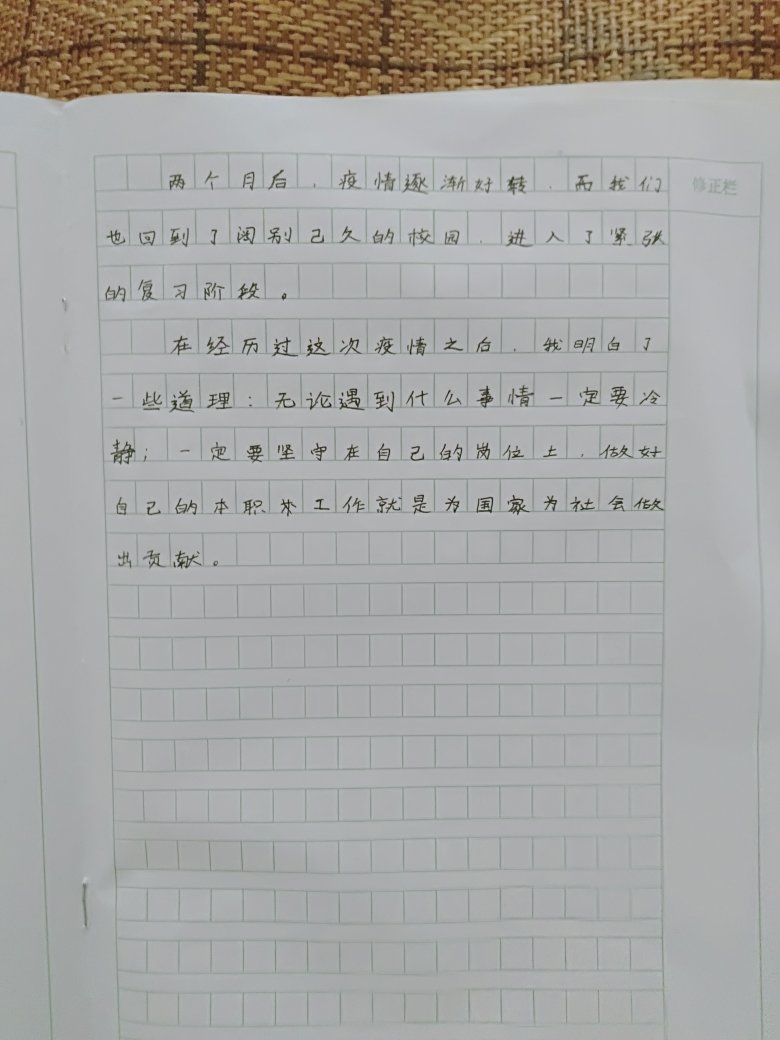 两个月后，疫情逐渐好转，而我们
修正栏
也回到了阔别已久的校园，进入了紧张
的复习阶段。
在经历过这次疫情之后，我明白了
一些道理：无论遇到什么事情一定要冷
静；一定要坚守在自己的岗位上，做好
自己的本职工作就是为国家为社会做
出贡献。